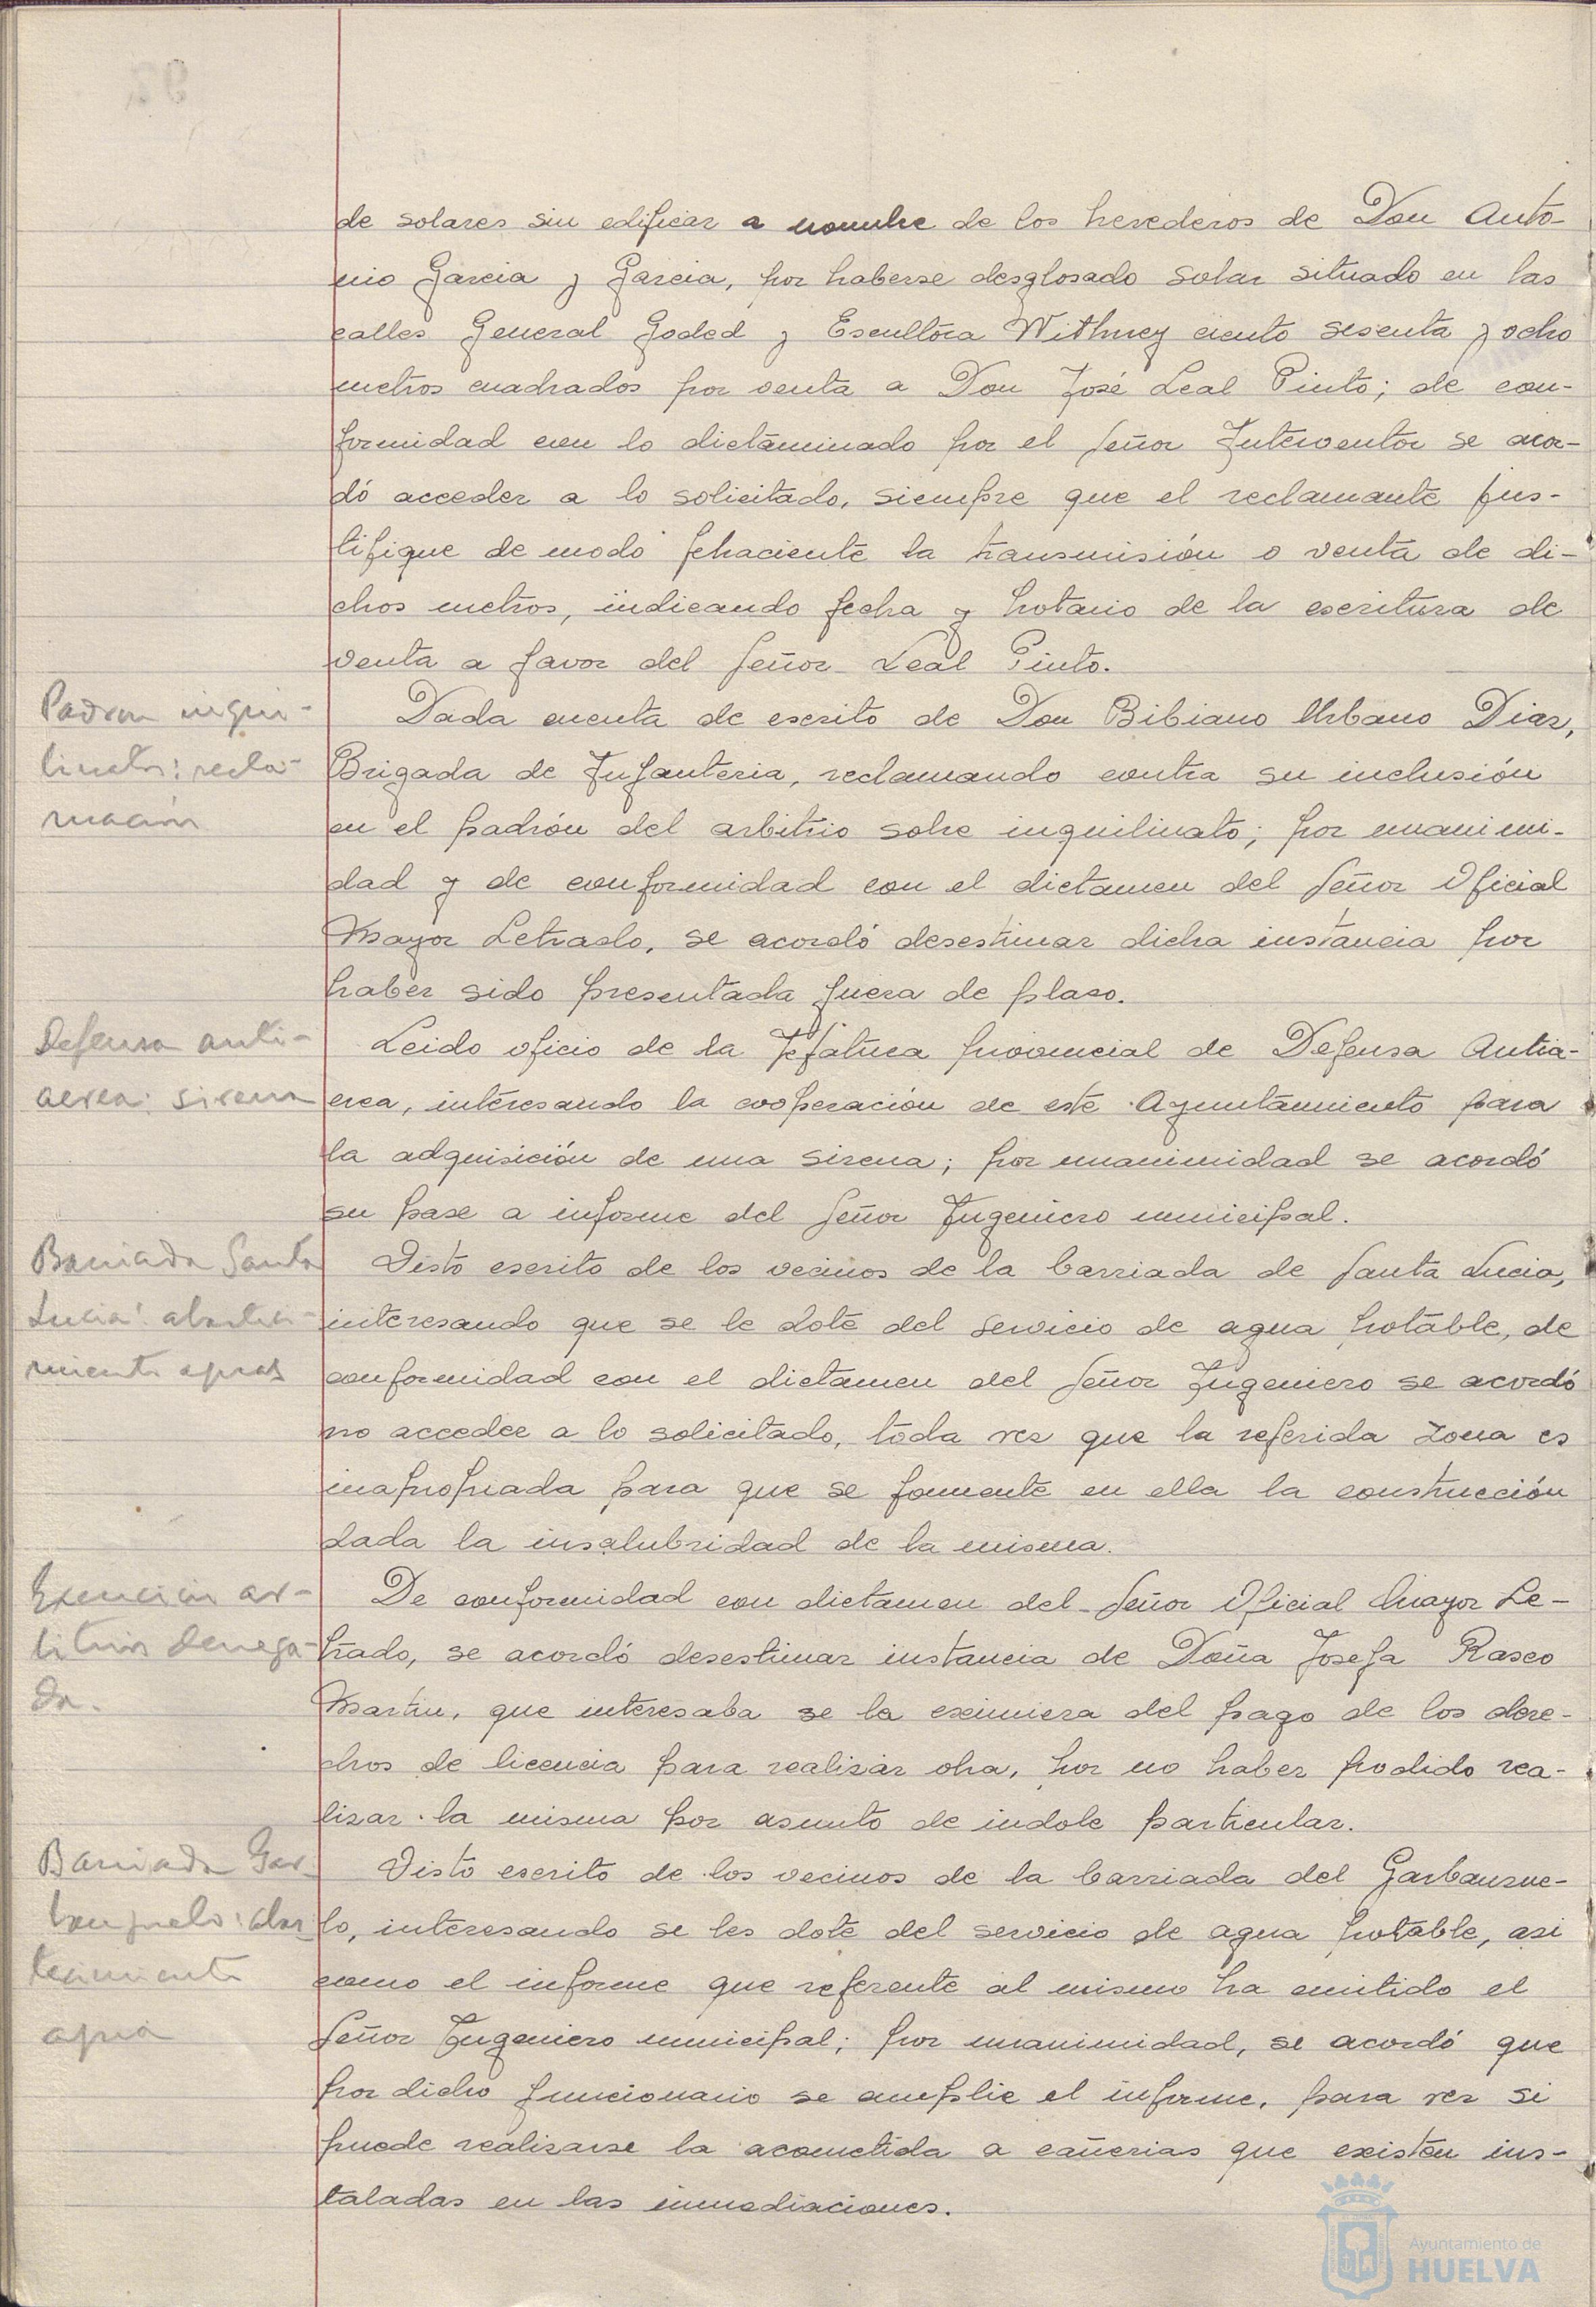 de solares sin edificar a nombre de los herederos de Don Anto-
nio Garcia y Garcia, por haberse desglosado solar situado en las
calles General Goded y Escultora Withney ciento sesenta y ocho
metros cuadrados por venta a Don José Leal Pinto; de con-
formidad con lo dictaminado por el Señor Interventor se acor-
dó acceder a lo solicitado, siempre que el reclamante jus-
tifique de modo fehaciente la transmisión o venta de di-
chos metros, indicando fecha y Notario de la escritura de
venta a favor del Señor Leal Pinto.
Padron inqui-
linato: recla-
macion
Dada cuenta de escrito de Don Bibiano Urbano Diaz,
Brigada de Infanteria, reclamando contra su inclusión
en el padrón del arbitrio sobre inquilinato; por unanimi-
dad y de conformidad con el dictamen del Señor Oficial
Mayor Letrado, se acordó desestimar dicha instancia por
haber sido presentada fuera de plazo.
Defensa anti-
aerea: sirena
Leido oficio de la Jefatura provincial de Defensa Antia-
erea, interesando la cooperación de este Ayuntamiento para
la adquisición de una sirena; por unanimidad se acordó
su pase a informe del Señor Ingeniero municipal.
Barriada Santa
Lucia: abasteci-
miento aguas
Visto escrito de los vecinos de la barriada de Santa Lucia,
interesando que se le dote del servicio de agua potable, de
conformidad con el dictamen del Señor Ingeniero se acordó
no acceder a lo solicitado, toda vez que la referida zona es
inapropiada para que se fomente en ella la construcción
dada la insalubridad de la misma.
Exencion ar-
bitrios denega-
da.
De conformidad con dictamen del Señor Oficial Mayor Le-
trado, se acordó desestimar instancia de Doña Josefa Rasco
Martin, que interesaba se la eximiera del pago de los dere-
chos de licencia para realizar obra, por no haber podido rea-
lizar la misma por asunto de indole particular.
Barriada Gar-
banzuelo: abas-
tecimiento
agua
Visto escrito de los vecinos de la barriada del Garbanzue-
lo, interesando se les dote del servicio de agua potable, asi
como el informe que referente al mismo ha emitido el
Señor Ingeniero municipal; por unanimidad, se acordó que
por dicho funcionario se amplie el informe, para ver si
puede realizarse la acometida a cañerias que existen ins-
taladas en las inmediaciones.
Ayuntamiento de
HUELVA